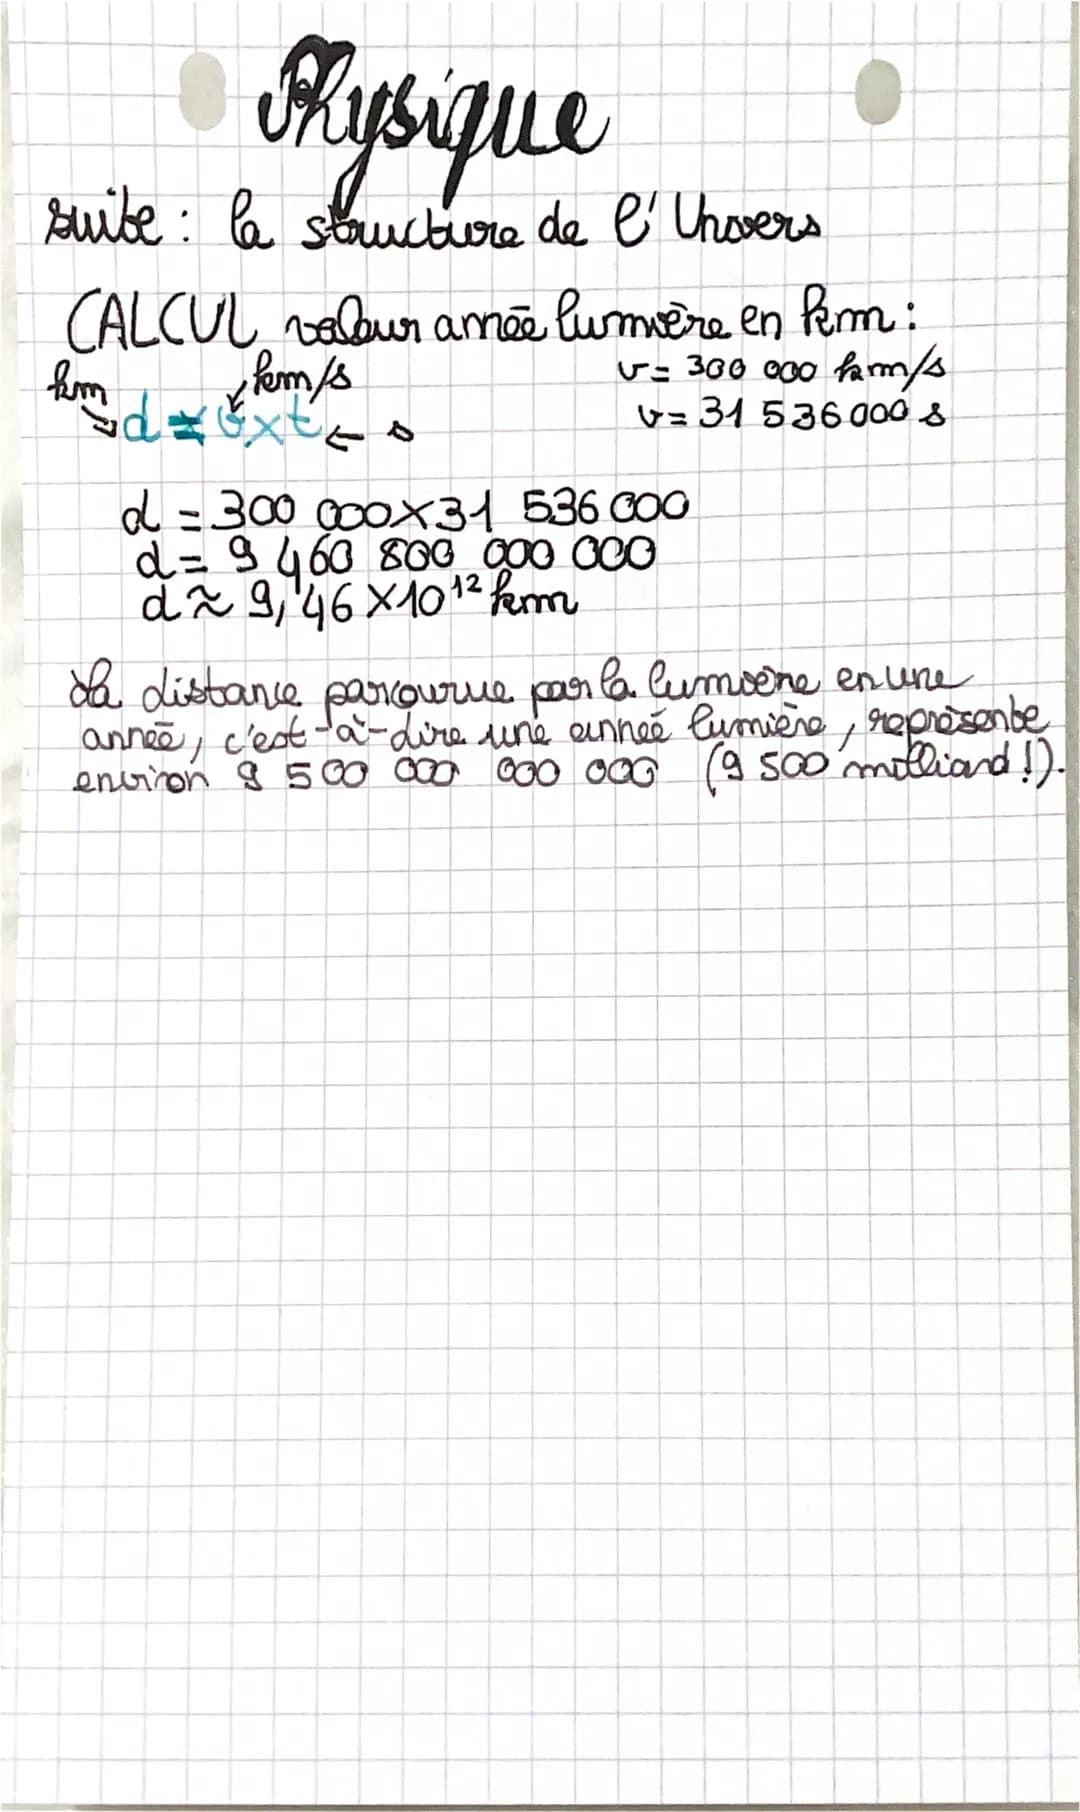 Physique
suite : la structure de l'Univers
CALCUL valeur année lumière en km :
km km/s v = 300 000 km/s
d = v x t ← s v = 31 536 000 s
d = 300 000 X 31 536 000
d = 9 460 800 000 000
d ≈ 9,46 X 10¹² km
La distance parcourue par la lumière en une
année, c'est-à-dire une année lumière, représente
environ 9 500 000 000 000 (9 500 milliard !).